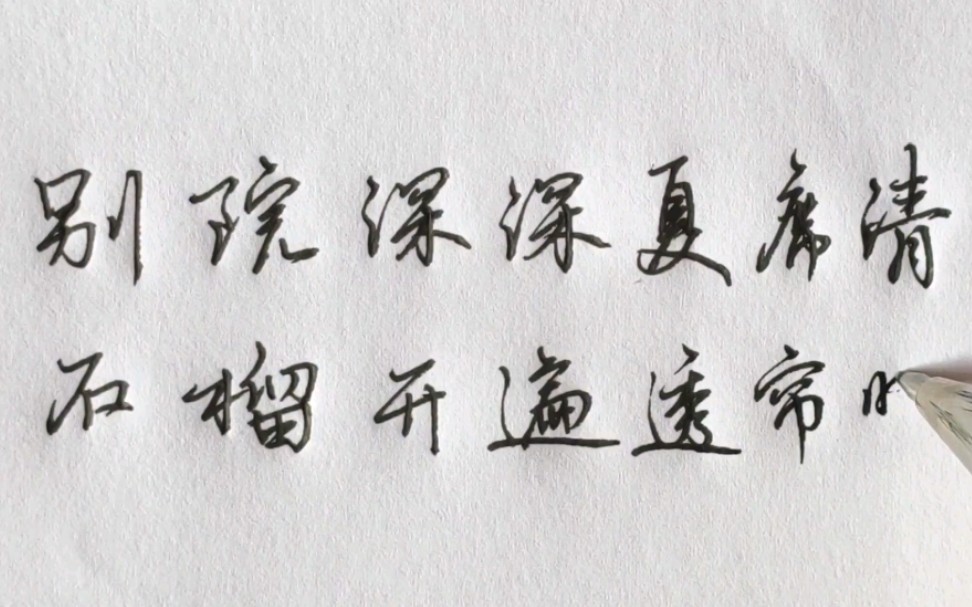 别院深深夏席清
石榴开遍透帘